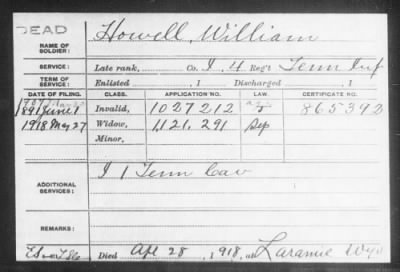 DEAD
Howell, William
NAME OF SOLDIER:
SERVICE: Late rank, Co. I, 4 Reg't Tenn Inf
TERM OF SERVICE: Enlisted , 1 Discharged , 1
DATE OF FILING. CLASS. APPLICATION NO. LAW. CERTIFICATE NO.
1891 June 1 Invalid, 1027212 865392
1918 May 27 Widow, 1,121,291 Sep
Minor,
ADDITIONAL SERVICES: I 1 Tenn Cav
REMARKS:
Died Apl 28, 1918, at Laramie Wyo